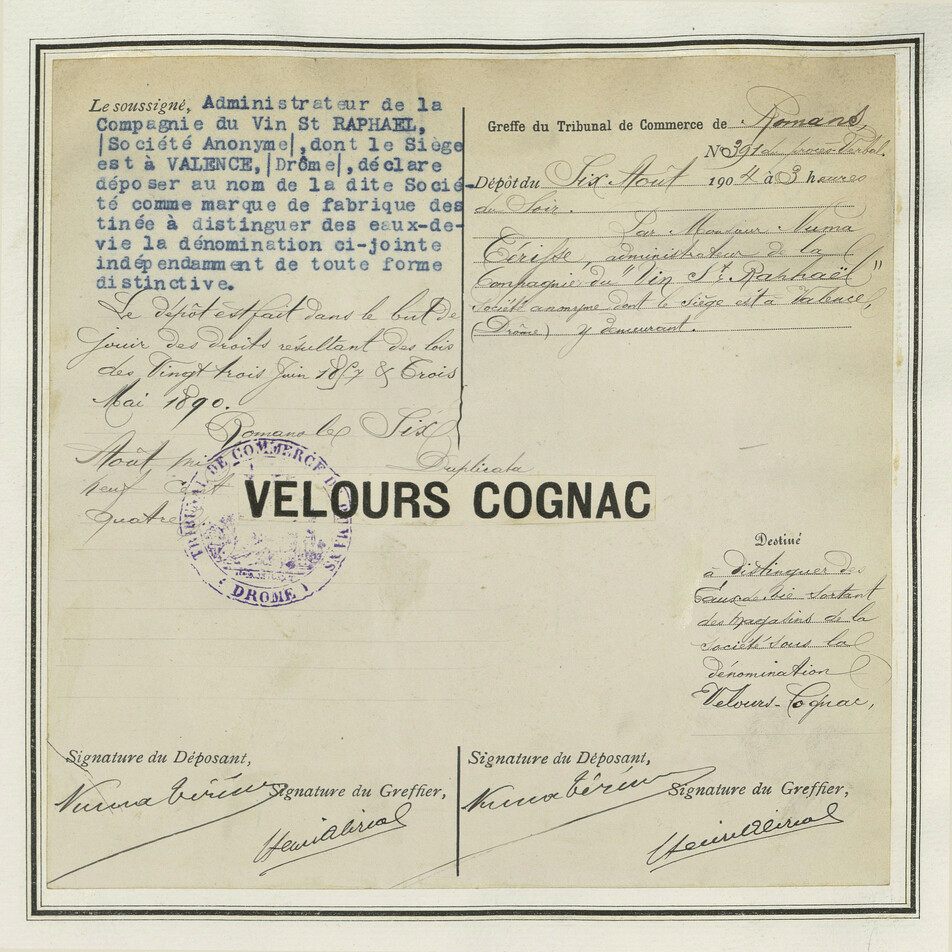 Le soussigné, Administrateur de la
Compagnie du Vin St RAPHAEL,
|Société Anonyme|, dont le Siège
est à VALENCE, |Drôme|, déclare
déposer au nom de la dite Socié-
té comme marque de fabrique des
tinée à distinguer des eaux-de-
vie la dénomination ci-jointe
indépendamment de toute forme
distinctive.
Le dépôt est fait dans le but de
jouir des droits résultant des lois
des Vingt trois Juin 1857 & Trois
Mai 1890.
Romans le Six
Août mil
neuf cent
quatre
Greffe du Tribunal de Commerce de Romans,
N° 391 du procès-Verbal.
Dépôt du Six Août 1904 à 3 heures
du Soir.
Par Monsieur Numa
administrateur de la
Compagnie du "Vin St. Raphaël"
société anonyme dont le Siège est à Valence,
(Drôme) y demeurant.
Duplicata
VELOURS COGNAC
TRIBUNAL DE COMMERCE DE ROMANS
( DROME )
Destiné
à distinguer des
Eaux de vie sortant
des Magasins de la
société sous la
dénomination
Velours-Cognac,
Signature du Déposant,
Numa
Signature du Greffier,
Signature du Déposant,
Numa
Signature du Greffier,